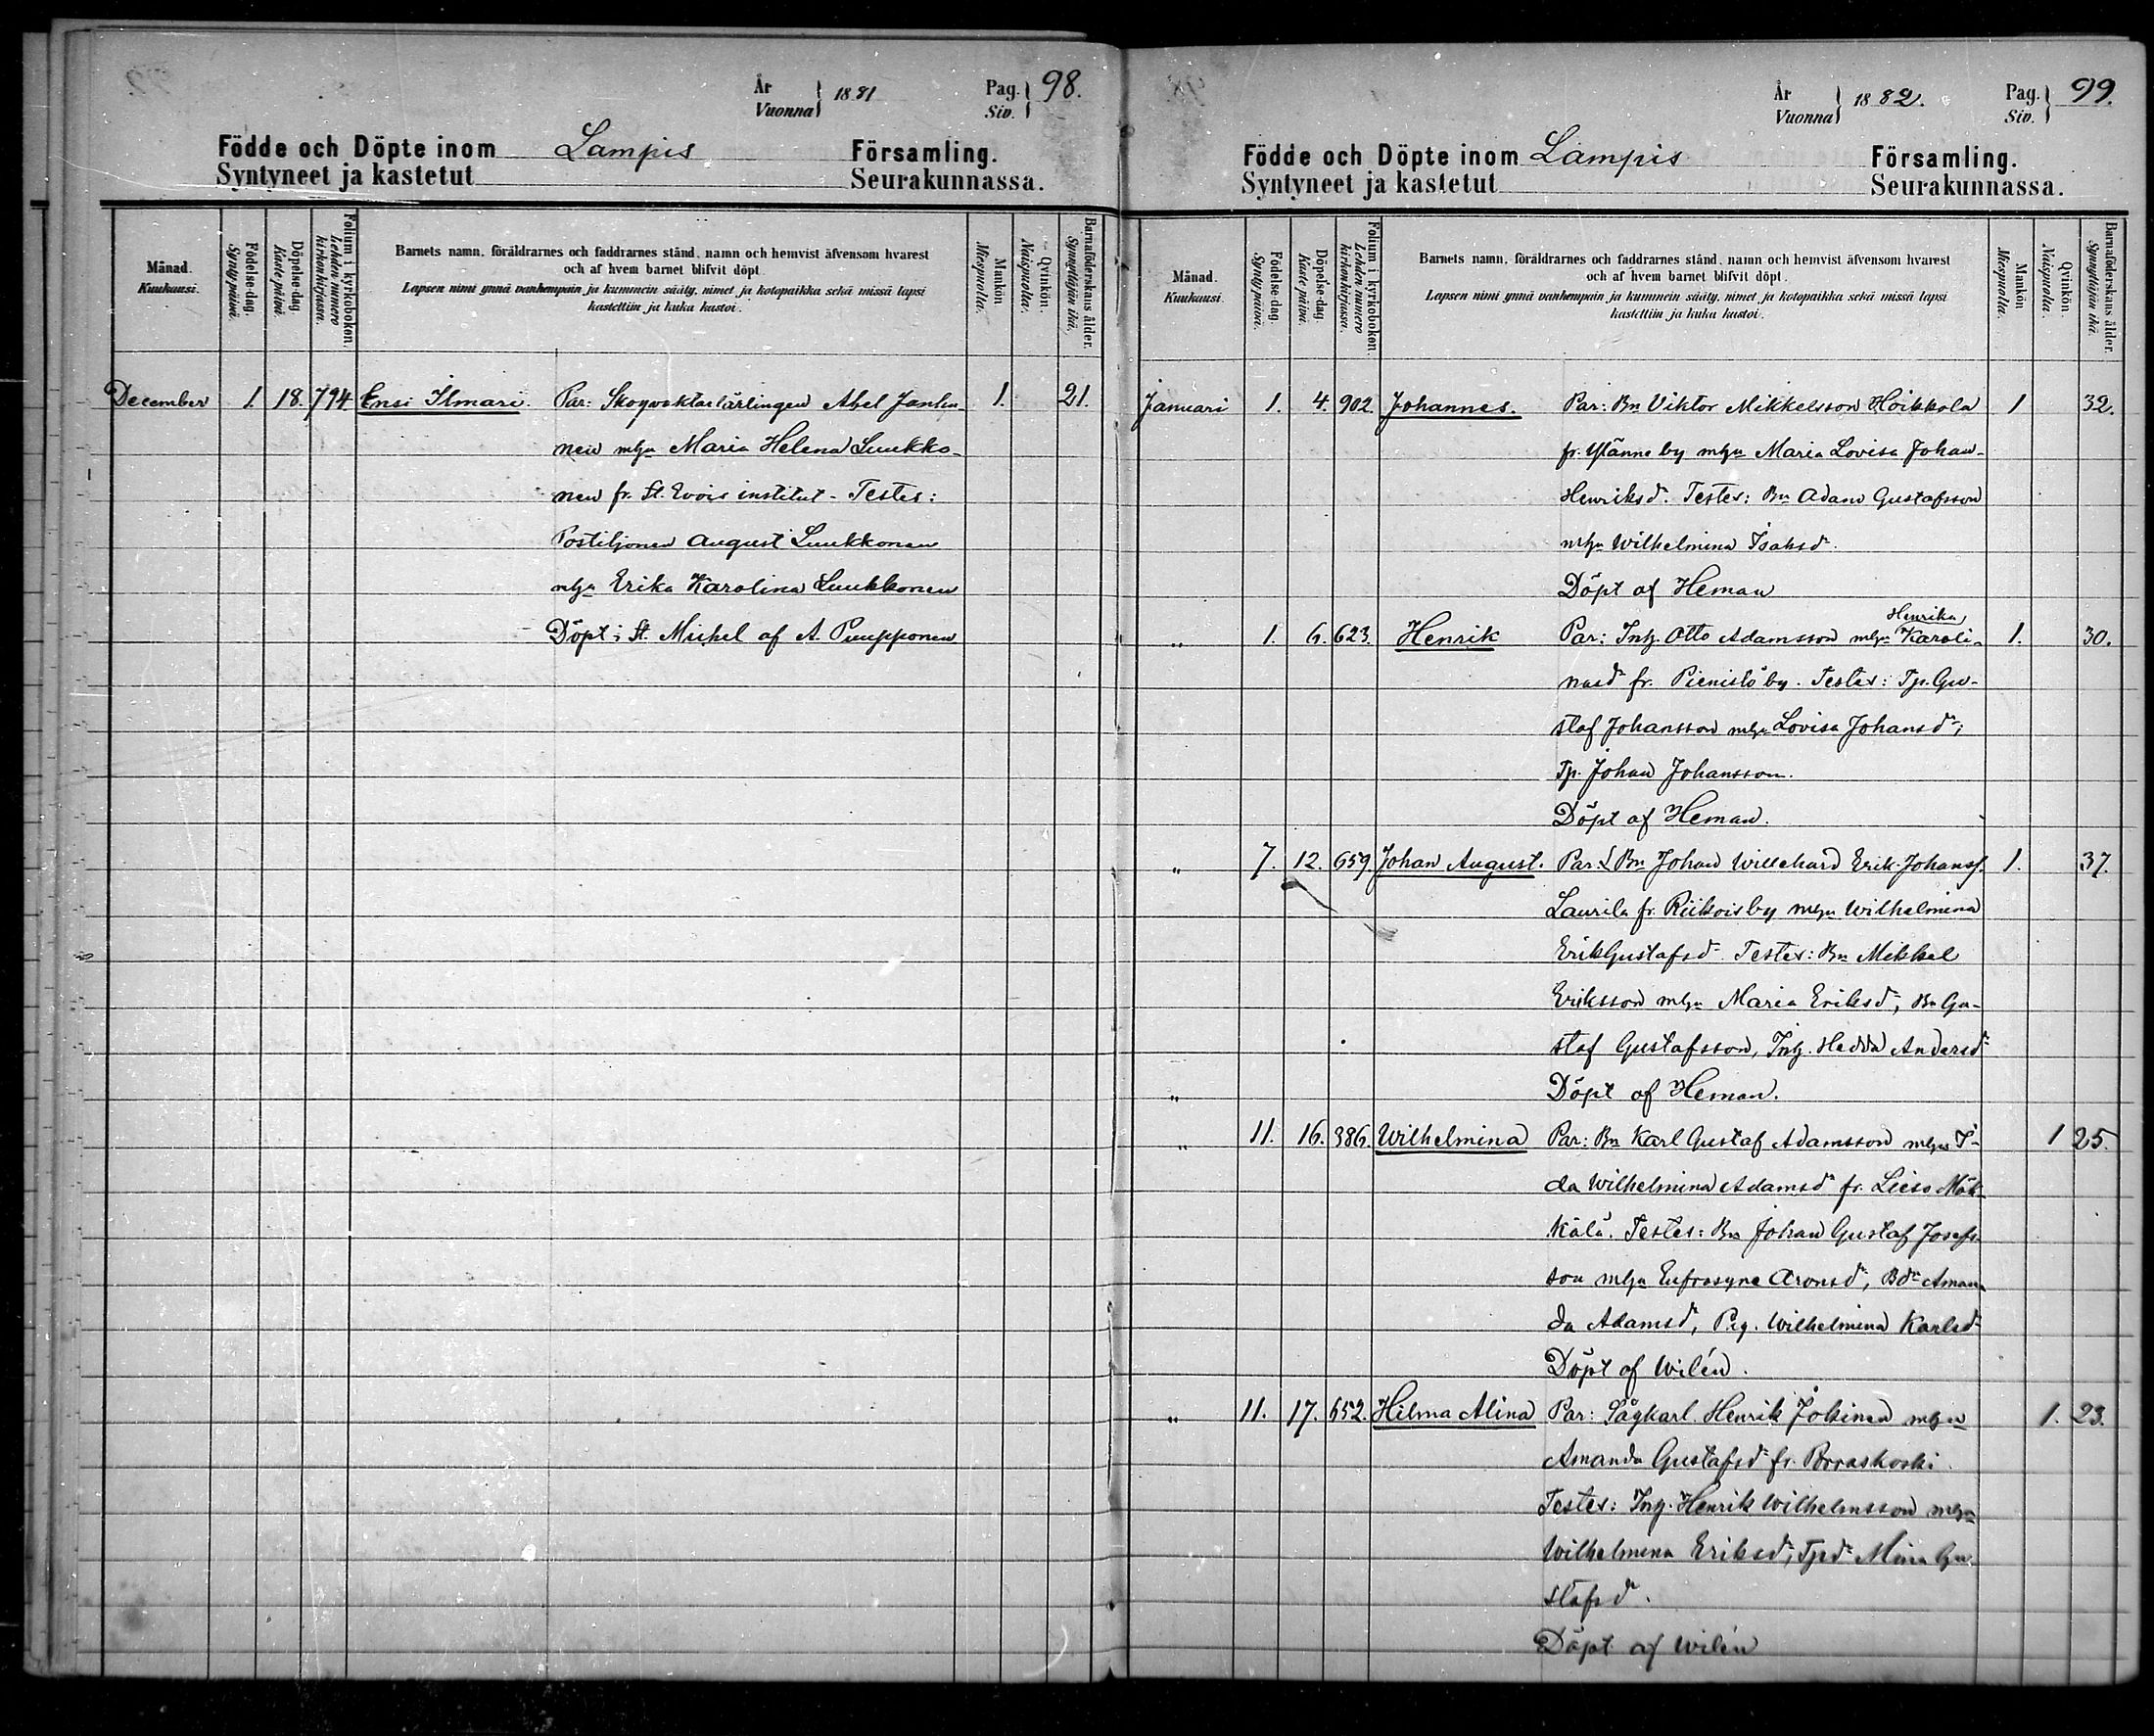 År
Vuonna
1881
Pag.
Siv.
98.
Födde och Döpte inom Lampis Församling.
Syntyneet ja kastetut Seurakunnassa.
Månad.
Kuukausi.
Födelse-dag.
Synty päivä.
Döpelse-dag.
Kaste päivä.
Folium i kyrkoboken.
Lehden numero
kirkonkirjassa.
Barnets namn, föräldrarnes och faddrarnes stånd, namn och hemvist äfvensom hvarest
och af hvem barnet blifvit döpt.
Lapsen nimi ynnä vanhempain ja kummein sääty, nimet ja kotopaikka sekä missä lapsi
kastettiin ja kuka kastoi.
Mankön
Miespuolta.
Qvinkön.
Naispuolta.
Barnaföderskans ålder.
Synnyttäjän ikä.
December 1. 18. 794 Ensi Ilmari. Par: Skogvaktarlärlingen Abel 1. 21.
nen mhu Maria Helena Luukko-
nen fr. St. Evois institut - Testes:
Postiljonen August Luukkonen
mhu Erika Karolina Luukkonen
Döpt i St. Michel af A. Pumpponen
År
Vuonna
1882.
Pag.
Siv.
99.
Födde och Döpte inom Lampis Församling.
Syntyneet ja kastetut Seurakunnassa.
Månad.
Kuukausi.
Födelse-dag.
Synty päivä.
Döpelse-dag.
Kaste päivä.
Folium i kyrkoboken.
Lehden numero
kirkonkirjassa.
Barnets namn, föräldrarnes och faddrarnes stånd, namn och hemvist äfvensom hvarest
och af hvem barnet blifvit döpt.
Lapsen nimi ynnä vanhempain ja kummein sääty, nimet ja kotopaikka sekä missä lapsi
kastettiin ja kuka kastoi.
Mankön
Miespuolta.
Qvinkön.
Naispuolta.
Barnaföderskans ålder.
Synnyttäjän ikä.
Januari 1. 4. 902. Johannes. Par: Bn Viktor Mikkelsson Hoikkola 1 32.
fr. Ylänne by mhu Maria Lovisa Johan-
Henriksdr. Testes: Bn Adam Gustafsson
mhu Wilhelmina Isaksdr.
Döpt af Heman
Henrika
" 1. 6. 623. Henrik Par: Inh. Otto Adamsson mhu Karoli- 1. 30.
nasdr fr. Pienistö by. Testes: Tp. Gu-
staf Johansson mhu Lovisa Johansdr;
Tp. Johan Johansson.
Döpt af Heman.
" 7. 12. 659. Johan August. Par: Bn Johan Willehard Erik-Johansf. 1. 37.
Laurila fr. Riikois by mhu Wilhelmina
ErikGustafsdr. Testes: Bn Mikkel
Eriksson mhu Maria Eriksdr, Bn Gu-
staf Gustafsson, Inh. Hedda Andersdr
" Döpt af Heman.
" 11. 16. 386. Wilhelmina Par: Bn Karl Gustaf Adamsson mhu I- 1 25.
da Wilhelmina Adamsdr fr. Lieso Mäk-
kälä. Testes: Bn Johan Gustaf Josefs-
son mhu Eufrosyne Aronsdr, Bdr Aman-
da Adamsdr, Pig. Wilhelmina Karlsdr
Döpt af Wilén.
" 11. 17. 652. Hilma Alina Par: Sågkarl. Henrik Jokinen mhu 1. 23.
Amanda Gustafsdr fr. Porraskoski.
Testes: Inh. Henrik Wilhelmsson mhu
Wilhelmina Eriksdr, Tpdr Mina Gu-
stafsdr.
Döpt af Wilén